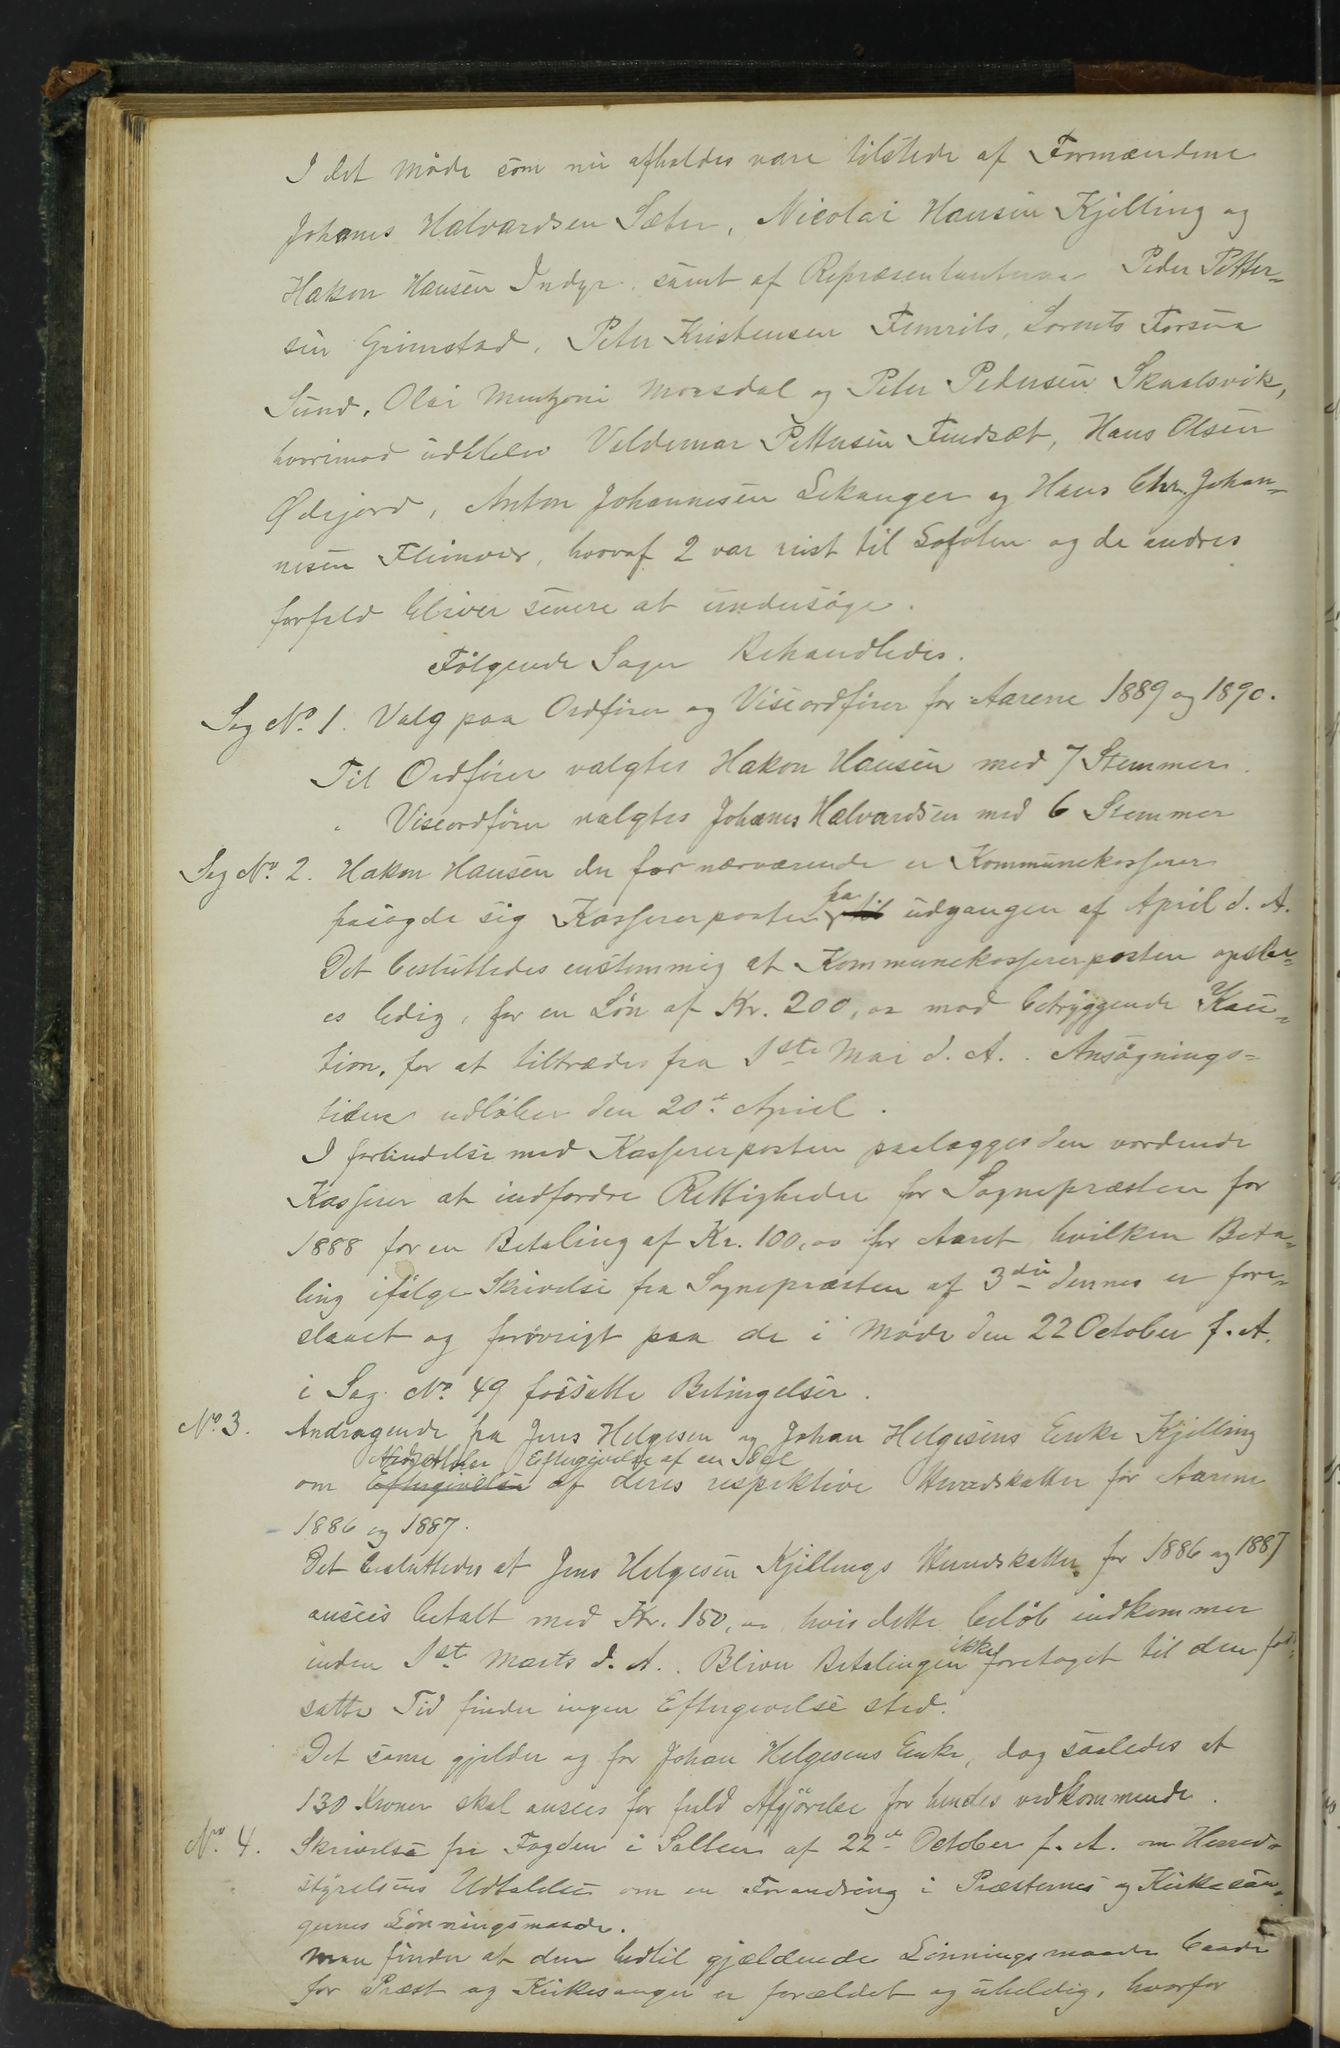 I det Møde som nu afholdes vare tilstede af Formændene
Johanes Halvardsen Sæter, Nicolai Hansen Kjelling og
Hakon Hansen Indyr samt af Repræsentanterne Peder Petter-
sen Grimstad, Peter Kristensen Femris, Lorents Forsaa
Sund, Olai Mentzoni Morsdal og Peter Pedersen Skaalsvik,
hvorimod udeblev Valdemar Pettersen Findset, Hans Olsen
Ødejord, Anton Johannesen Lekanger og Hans Chr. Johan-
nesen Fleinvær, hvoraf 2 var reist til Lofoten og de andres
forfald bliver senere at undersøge.
Følgende Sager Behandledes.
Sag No. 1. Valg paa Ordfører og Viseordfører for Aarene 1889 og 1890.
Til Ordfører valgtes Hakon Hansen med 7 Stemmer.
" Viseordfører valgtes Johanes Halvardsen med 6 Stemmer
Sag No. 2. Hakon Hansen der for nærværende er Kommunekasserer
frasagde sig Kassererposten fra til udgangen af April d. A.
Det besluttedes enstemmig at Kommunekassererposten opslaa-
es ledig, for en Løn af Kr. 200,00 mod betryggende Kau-
tion, for at tiltrædes fra 1ste Mai d. A. Ansøgnings-
tiden udløber den 20de April.
I forbindelse med Kassererposten paalægges den vordende
Kasserer at indfordre Rettigheder for Sognepræsten for
1888 for en Betaling af Kr. 100,00 for Aaret hvilken Beta-
ling ifølge Skrivelse fra Sognepræsten af 3die dennes er fore-
slaaet og forøvrigt paa de i Møde den 22 October f. A.
i Sag No. 49 fossatte Betingelser.
No. 3. Andragende fra Jens Helgesen og Johan Helgesens Enke Kjelling
Nedsættelse Eftergivelse af en Del
om Eftergivelse af deres respektive Herredskatter for Aarene
1886 og 1887.
Det besluttedes at Jens Helgesen Kjellings Herredskatter for 1886 og 1887
ansees betalt med Kr. 150,00 hvis dette beløb indkommer
inden 1ste Marts d. A. Bliver Betalingen ikke foretaget til den fast-
satte Tid finder ingen Eftergivelse sted.
Det samme gjelder og for Johan Helgesens Enke, dog saaledes at
130 Kroner skal ansees for fuld Afgjørelse for hendes vedkommende.
No. 4. Skrivelse fra Fogden i Salten af 22de October f. A. om Herreds-
styrelsens Udtalelse om en Forandring i Præsternes og Kirkesan-
gernes Lønningsmaade.
Man finder at den hidtil gjældende Lønningsmaade baade
for Præst og Kirkesanger er forældet og uheldig, hvorfor